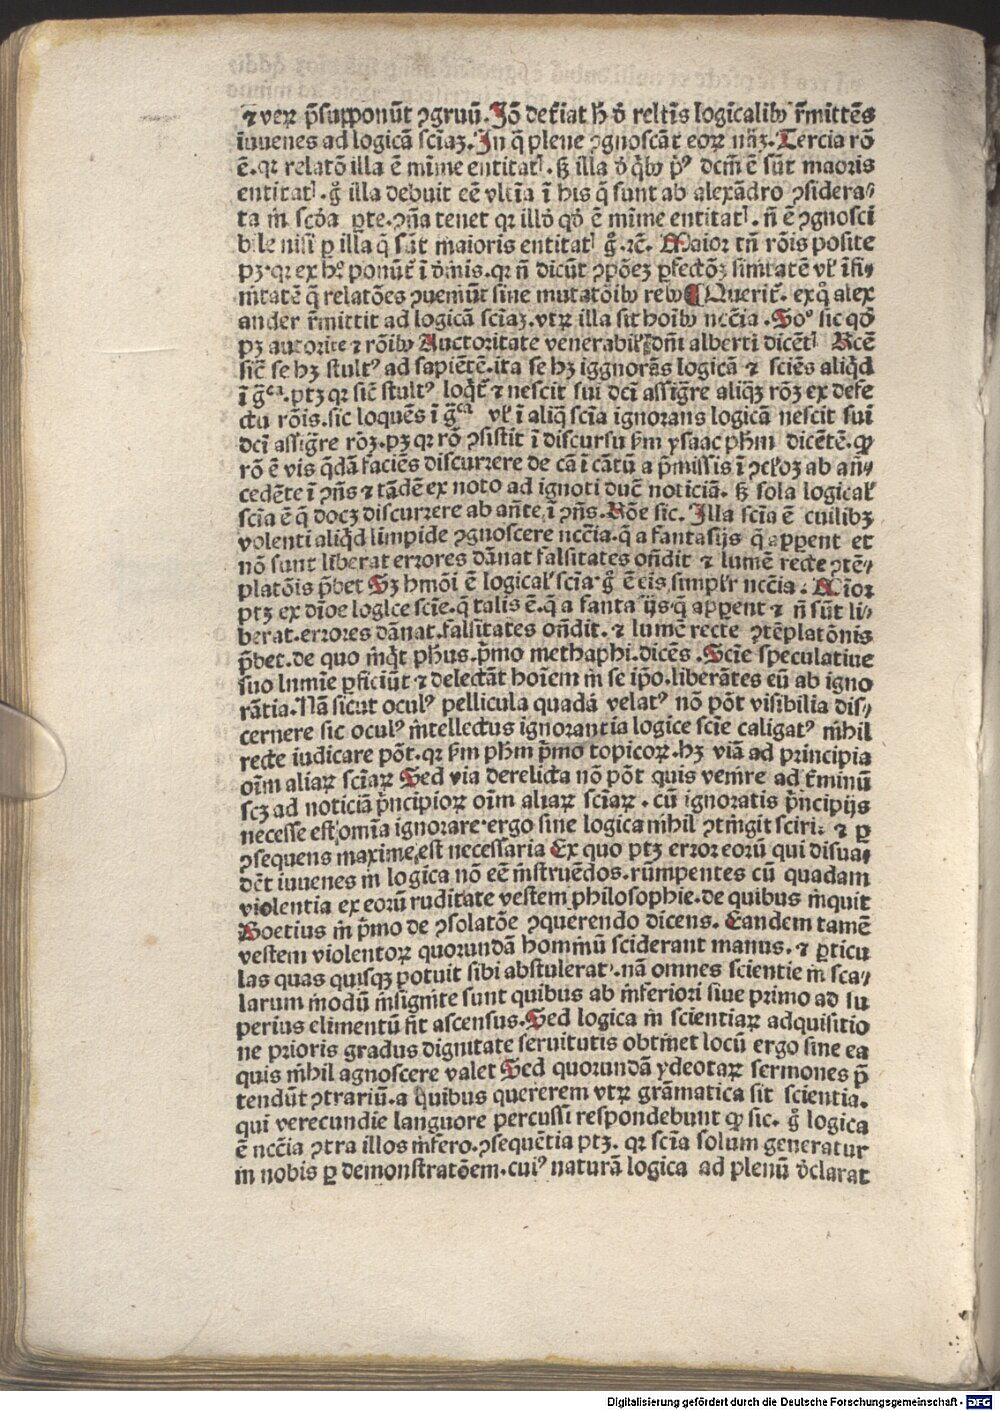 ⁊ veꝝ p̄supponūt ꝯgruū. Jõ defiat ħ ð relt̄is logicalibꝰ r̄mittēs
iuuenes ad logicā sciaꝫ. Jn q̄ plene ꝯgnoscāt eoꝝ nāꝫ. Tercia rõ
ē. qꝛ relatõ illa ē mīme entitatꝭ. ꝫ illa ð qͥbꝰ pͥꝰ dc̄m ē sūt maoris
entitatꝭ. g̊ illa debuit eē vltīa ī his q̄ sunt ab alexādro ꝯsidera⸗
ta in scða ꝑte. ꝯn̄a tenet qꝛ illð qð ē mīme entitatꝭ. n̄ ē ꝯgnosci
bile nisi ꝑ illa q̄ sūt maioris entitatꝭ g̊. ⁊c̄. Maior tn̄ rõis posite
pꝫ. qꝛ ex hͦ ponūt̄ ī ðmis. qꝛ n̄ dicūt ꝓpõeꝫ ꝑfectõꝫ simitatē vl̓ īfi⸗
nitatē q̄ relatões ꝯueniūt sine mutatõibꝰ rebꝰ ¶ Querit̄. exq̊ alex
ander r̄mittit ad logicā sciaꝫ. vtꝝ illa sit hoībꝰ nc̄cīa. Soꝰ sic qð
pꝫ autorite ⁊ rõibꝰ Auctoritate venerabil̓ dn̄i alberti dicētꝭ Rcē
sic̄ se hꝫ stultꝰ ad sapiētē. ita se hꝫ iggnorās logicā ⁊ sciēs aliqͥd
ī g̊ᶜᵃ. ptꝫ qꝛ sic̄ stultꝰ loqͥt̄ ⁊ nescit sui dc̄i assig̊re aliqͣꝫ rõꝫ ex defe
ctu rõis. sic loquēs ī g̊ᶜᵃ vl̓ ī aliq̄ scīa ignorans logicā nescit sui
dc̄i assig̊re rõꝫ. pꝫ qꝛ rõ ꝯsistit ī discursu ẜm ysaac pħm dicētē. ꝙ
rõ ē vis q̄dā faciēs discurrere de cā ī cātū a p̄missis ī ꝯcl̓oꝫ ab an̄⸗
cedēte ī ꝯn̄s ⁊ tādē ex noto ad ignoti duc̄ noticiā. ꝫ sola logical̓
scīa ē q̄ docꝫ discurrere ab an̄te ī ꝯn̄s. Rõe sic. Illa scīa ē cuilibꝫ
volenti aliqͥd limpide ꝯgnoscere nc̄cīa. q̄ a fantasijs q̄ apꝑent et
nõ sunt liberat errores dānat falsitates on̄dit ⁊ lumē recte ꝯtē⸗
platõis p̄bet Sꝫ hmõi ē logical̓ scīa. g̊ ē eis simpl̓r nc̄cīa. Mīor
ptꝫ ex dīoe logīce scīe. q̄ talis ē. q̄ a fantasijs q̄ apꝑent ⁊ n̄ sūt li⸗
berat. errores dānat. falsitates on̄dit. ⁊ lumē recte ꝯtēplatõnis
p̄bet. de quo inq̊t pħus. p̄mo methaphi. dicēs. Scīe speculatiue
suo lumīe ꝑficiūt ⁊ delectāt hoīem in se ip̄o. liberātes eū ab igno
rātia. Nā sicut oculꝰ pellicula quadā velatꝰ nõ põt visibilia dis⸗
cernere sic oculꝰ intellectus ignorantia logice scīe caligatꝰ nihil
recte iudicare põt. qꝛ ẜm pħm p̄mo topicoꝝ. hꝫ viā ad principia
oīm aliaꝝ sciaꝝ Sed via derelicta nõ põt quis venīre ad t̄minū
scꝫ ad noticiā p̄ncipioꝝ oīm aliaꝝ sciaꝝ. cū ignoratis p̄ncipijs
necesse est omīa ignorare. ergo sine logica nihil ꝯtingit sciri. ⁊ ꝑ
ꝯsequens maxime est necessaria Ex quo ptꝫ error eorū qui disua⸗
dēt iuuenes in logica nõ eē instruēdos. rūmpentes cū quadam
violentia ex eorū ruditate vestem philosophie. de quibus inquit
Boetius in p̄mo de ꝯsolatõe ꝯquerendo dicens. Eandem tamē
vestem violentoꝝ quorundā hominū sciderant manus. ⁊ ꝑticu
las quas quisqꝫ potuit sibi abstulerāt. nā omnes scientie in sca⸗
larum modū insignite sunt quibus ab inferiori siue primo ad su
perius elimentū fit ascensus. Sed logica in scientiaꝝ adquisitio
ne prioris gradus dignitate seruitutis obtinet locū ergo sine ea
quis nihil agnoscere valet Sed quorundā ydeotaꝝ sermones p̄
tendūt ꝯtrariū. a quibus quererem vtꝝ grāmatica sit scientia.
qui verecundie languore percussi respondebunt ꝙ sic. g̊ logica
ē nc̄cīa ꝯtra illos infero. ꝯsequētia ptꝫ. qꝛ scīa solum generatur
in nobis ꝑ demonstratõem. cuiꝰ naturā logica ad plenū ðclarat
Digitalisierung gefördert durch die Deutsche Forschungsgemeinschaft - DFG